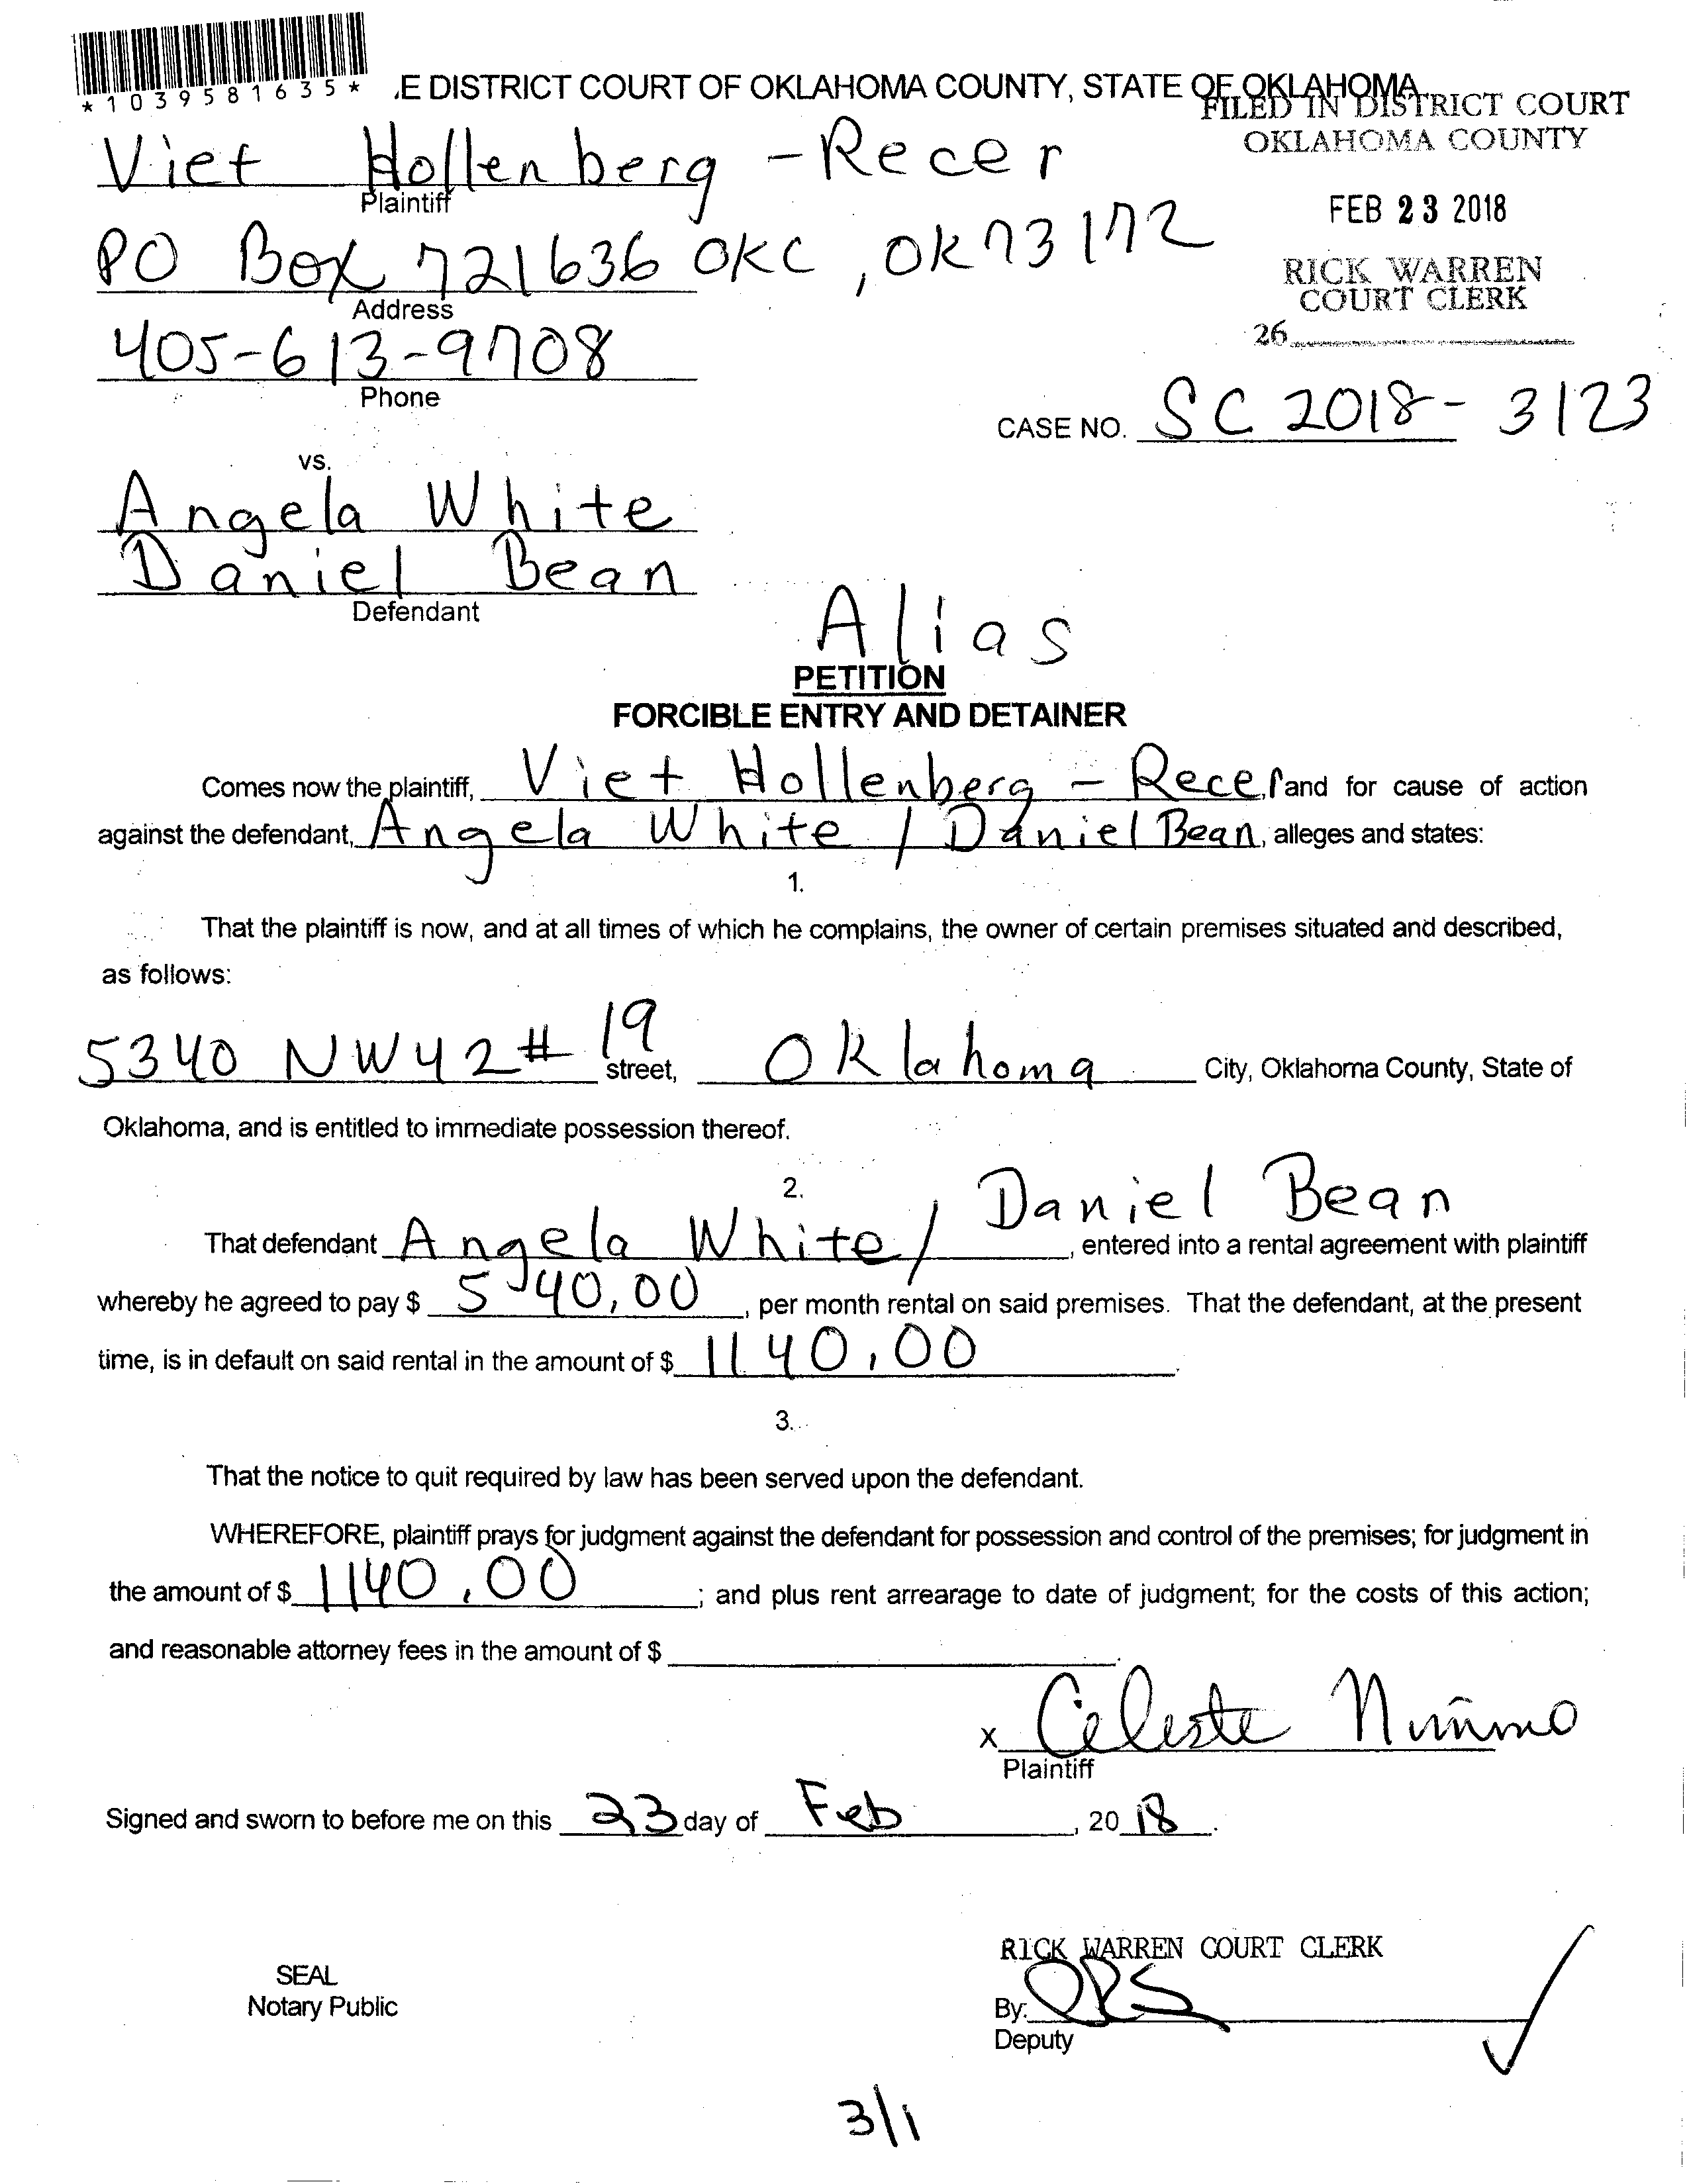 *1039581635*
.E DISTRICT COURT OF OKLAHOMA COUNTY, STATE OF OKLAHOMA
FILED IN DISTRICT COURT
OKLAHOMA COUNTY
Viet Hollenberg - Recer
Plaintiff
FEB 23 2018
PO Box 721636 OKC, OK 73172
Address
RICK WARREN
COURT CLERK
26
405-613-9708
Phone
CASE NO. SC 2018- 3123
vs.
Angela White
Daniel Bean
Defendant
Alias
PETITION
FORCIBLE ENTRY AND DETAINER
Comes now the plaintiff, Viet Hollenberg - Recer, and for cause of action
against the defendant, Angela White / Daniel Bean, alleges and states:
1.
That the plaintiff is now, and at all times of which he complains, the owner of certain premises situated and described,
as follows:
5340 NW 42 # 19 street, Oklahoma City, Oklahoma County, State of
Oklahoma, and is entitled to immediate possession thereof.
2.
That defendant Angela White / Daniel Bean, entered into a rental agreement with plaintiff
whereby he agreed to pay $ 540.00, per month rental on said premises. That the defendant, at the present
time, is in default on said rental in the amount of $ 1140.00.
3.
That the notice to quit required by law has been served upon the defendant.
WHEREFORE, plaintiff prays for judgment against the defendant for possession and control of the premises; for judgment in
the amount of $ 1140.00; and plus rent arrearage to date of judgment; for the costs of this action;
and reasonable attorney fees in the amount of $ .
x Celeste Nimmo
Plaintiff
Signed and sworn to before me on this 23 day of Feb, 2018.
RICK WARREN COURT CLERK
SEAL
Notary Public
By:
Deputy
3/1